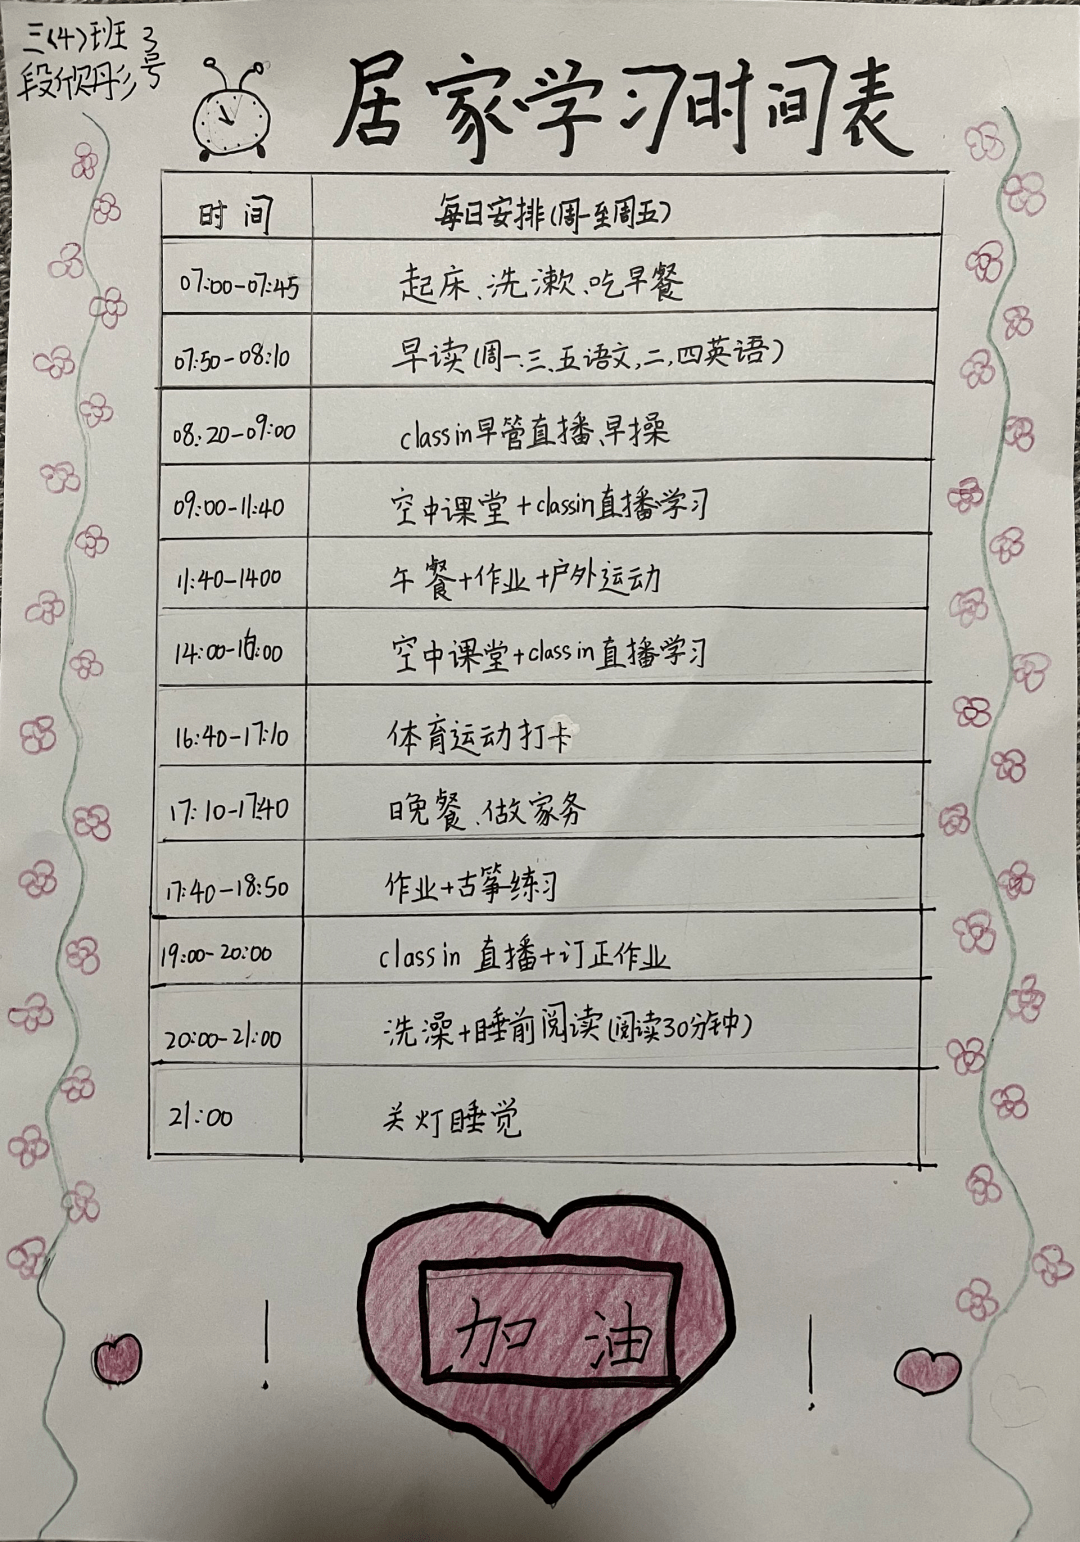 三(4)班 3号
段欣彤
居家学习时间表
时间 每日安排(周一至周五)
07:00-07:45 起床、洗漱、吃早餐
07:50-08:10 早读(周一、三、五语文,二,四英语)
08:20-09:00 classin早管直播、早操
09:00-11:40 空中课堂+classin直播学习
11:40-1400 午餐+作业+户外运动
14:00-16:00 空中课堂+classin直播学习
16:40-17:10 体育运动打卡
17:10-17:40 晚餐、做家务
17:40-18:50 作业+古筝练习
19:00-20:00 classin 直播+订正作业
20:00-21:00 洗澡+睡前阅读(阅读30分钟)
21:00 关灯睡觉
! 加油 !